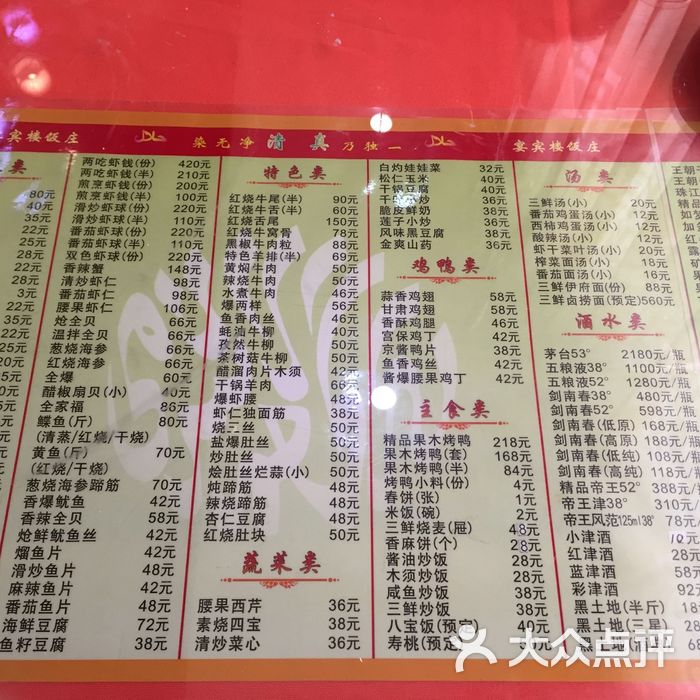 宾楼饭庄
染无净 清真 乃独一
宴宾楼饭庄
类
80元
40元
35元
22元
25元
22元
28元
22元
3元
5元
两吃虾钱(份) 420元
两吃虾钱(半) 210元
煎烹虾钱(份) 200元
煎烹虾钱(半) 100元
滑炒虾球(份) 220元
滑炒虾球(半) 110元
番茄虾球(份) 220元
番茄虾球(半) 110元
双色虾球(份) 220元
香辣蟹 148元
清炒虾仁 98元
番茄虾仁 98元
腰果虾仁 98元
炝全贝 66元
温拌全贝 66元
葱烧海参 66元
红烧海参 66元
全爆 60元
醋椒扇贝(小) 40元
全家福 86元
鲽鱼(斤) 80元
(清蒸/红烧/干烧)
黄鱼(斤) 70元
(红烧/干烧)
葱烧海参蹄筋 70元
香爆鱿鱼 42元
香辣全贝 58元
炝鲜鱿鱼丝 42元
熘鱼片 42元
滑炒鱼片 42元
麻辣鱼片 48元
番茄鱼片 48元
海鲜豆腐 72元
鱼籽豆腐 38元
特色类
红烧牛尾(半) 90元
红烧牛舌(半) 60元
红烧舌尾 150元
红烧牛窝骨 78元
黑椒牛肉粒 88元
特色羊排(半) 69元
黄焖牛肉 50元
辣烧牛肉 50元
水煮牛肉 46元
爆两样 56元
鱼香肉丝 46元
蚝油牛柳 50元
孜然牛柳 50元
茶树菇牛柳 50元
醋溜肉片木须 42元
干锅羊肉 66元
爆虾腰 48元
虾仁独面筋 38元
烧三丝 50元
盐爆肚丝 50元
炒肚丝 50元
烩肚丝烂蒜(小) 50元
炖蹄筋 48元
辣烧蹄筋 50元
杏仁豆腐 48元
红烧肚块 50元
蔬菜类
腰果西芹 36元
素烧四宝 36元
清炒菜心 36元
白灼娃娃菜 32元
松仁玉米 40元
干锅豆腐 40元
小炒 36元
脆皮鲜奶 38元
莲子小炒 36元
风味黑豆腐 38元
金爽山药 36元
鸡鸭类
蒜香鸡翅 58元
甘肃鸡翅 58元
香酥鸡腿 42元
宫保鸡丁 42元
京酱鸭片 38元
鱼香鸡丝 42元
酱爆腰果鸡丁 42元
主食类
精品果木烤鸭 218元
果木烤鸭(套) 168元
果木烤鸭(半) 84元
烤鸭小料(份) 4元
春饼(张) 1元
米饭(碗) 2元
三鲜烧麦(屉) 48元
香麻饼(个) 2元
酱油炒饭 38元
木须炒饭 38元
咸鱼炒饭 38元
三鲜炒饭 38元
八宝饭(预定) 40元
寿桃(预定)
汤类
三鲜汤(小) 20元
番茄鸡蛋汤(小) 12元
西柿鸡蛋汤(小) 12元
酸辣汤(小) 12元
虾干菜叶汤(小) 20元
榨菜面汤(小) 18元
番茄面汤(小) 18元
三鲜伊府面(份) 88元
三鲜卤捞面(预定)560元
酒水类
茅台53° 2180元/瓶
五粮液38° 1100元/瓶
五粮液52° 1280元/瓶
剑南春38° 480元/瓶
剑南春52° 598元/瓶
剑南春(低原) 168元/
剑南春(高原) 188元/
剑南春(低纯) 108元/
剑南春(高纯) 118元/
精品帝王52° 318元
帝王风范125ml38°
小津酒
红津酒 78元
蓝津酒 58元
彩津酒 92元
黑土地(半斤) 18元
黑土地(三星)
黑土地
王朝
珠江
精品
大众点评